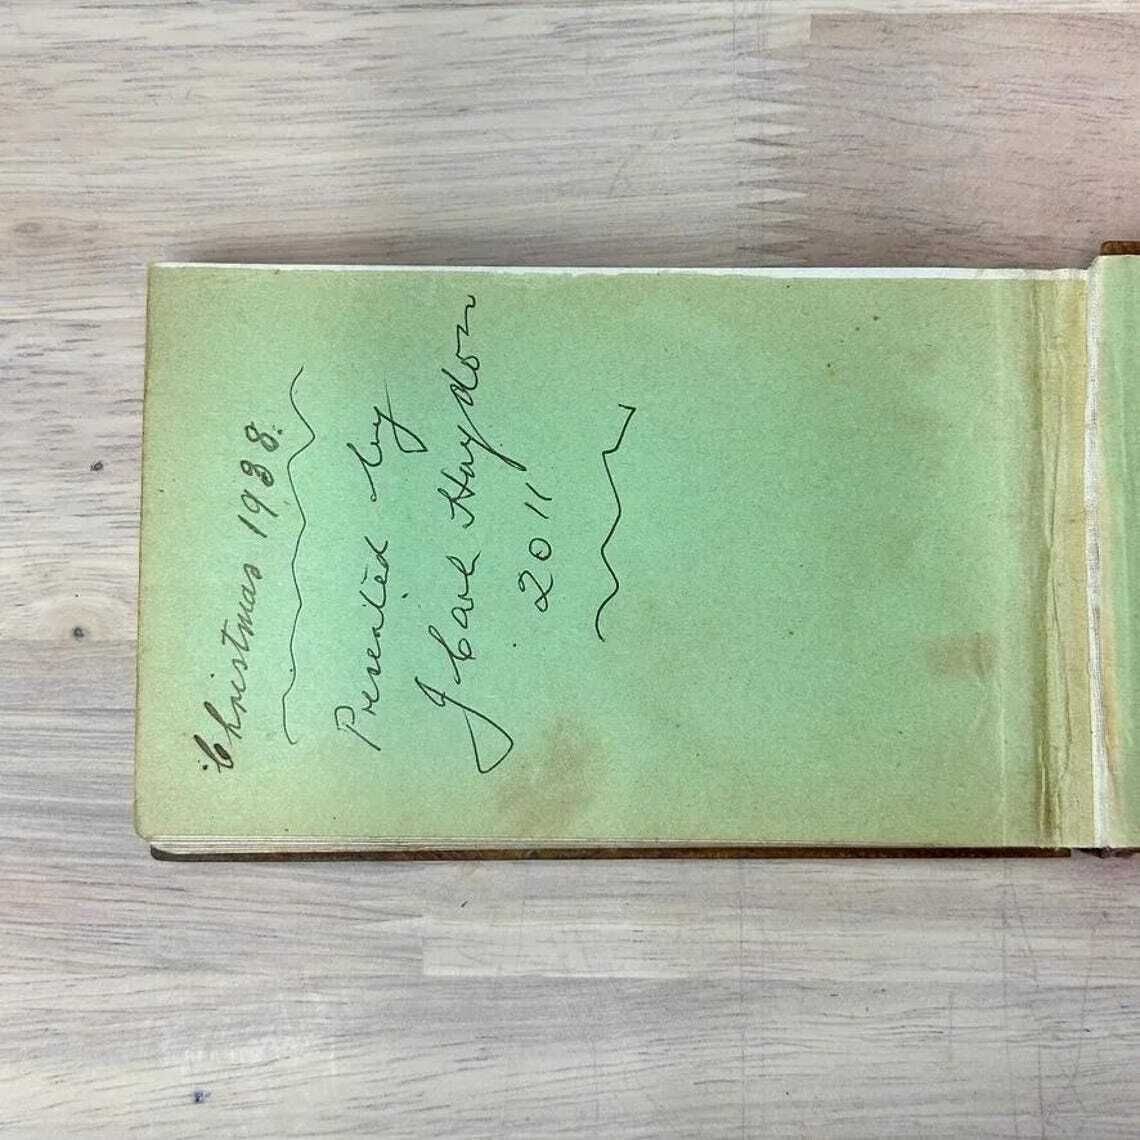 Christmas 1938.
Presented by
J Carl Haydon
2011